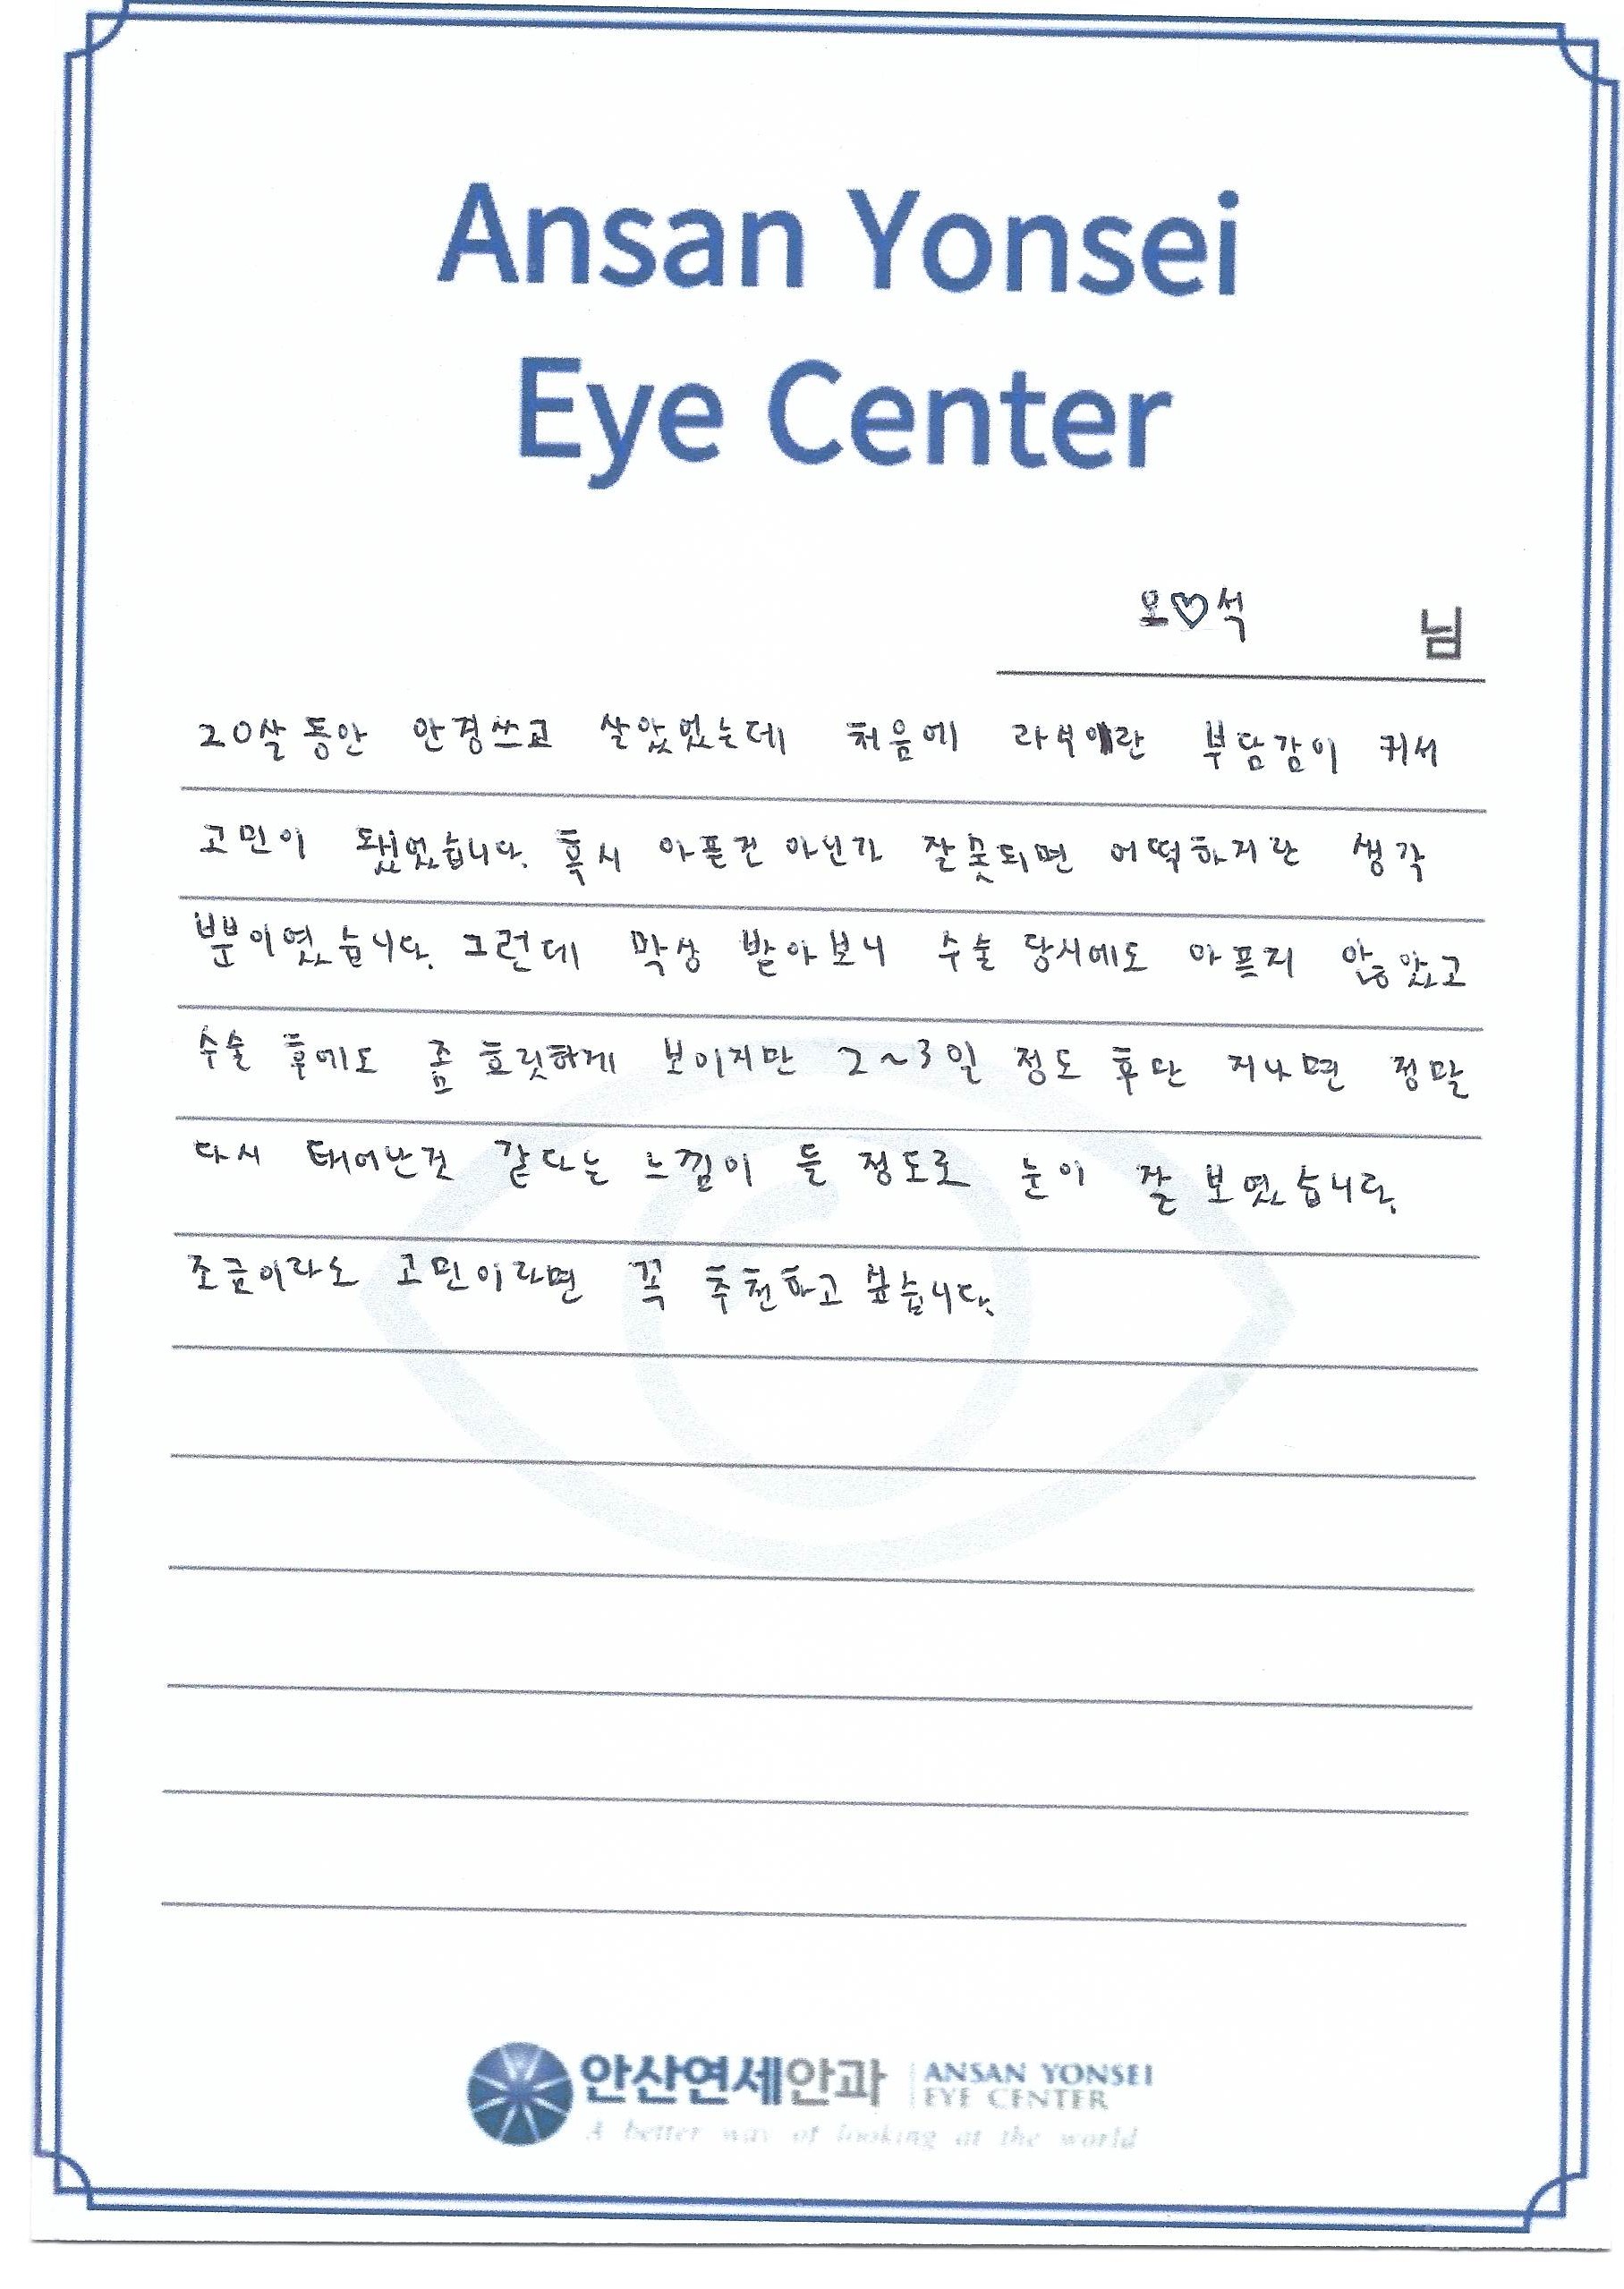 Ansan Yonsei
Eye Center
오♡석 님
20살동안 안경쓰고 살았었는데 처음에 라식이란 부담감이 커서
고민이 됐었습니다. 혹시 아픈건 아닌가 잘못되면 어떡하지란 생각
뿐이였습니다. 그런데 막상 받아보니 수술 당시에도 아프지 않았고
수술 후에도 좀 흐릿하게 보이지만 2~3일 정도 후만 지나면 정말
다시 태어난것 같다는 느낌이 들 정도로 눈이 잘 보였습니다.
조금이라도 고민이라면 꼭 추천하고 싶습니다.
안산연세안과 ANSAN YONSEI
EYE CENTER
A better way of looking at the world